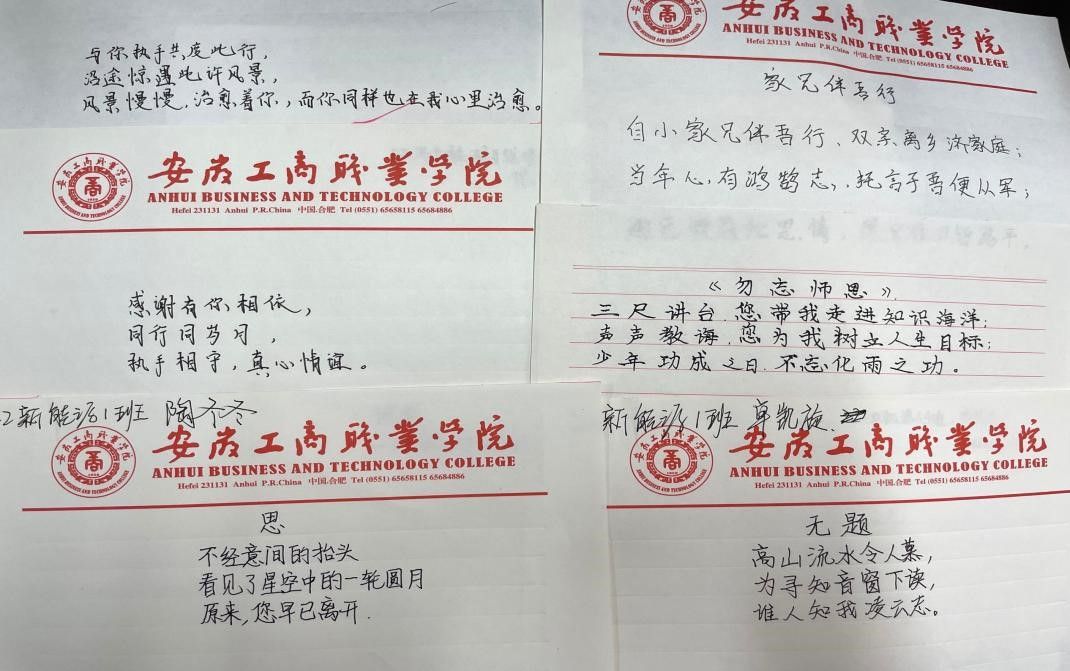 与你执手共度此行，
沿途惊遇此许风景，
风景慢慢治愈着你，而你同样也在我心里治愈。
安徽工商職業学院
ANHUI BUSINESS AND TECHNOLOGY COLLEGE
Hefei 231131 Anhui P.R.China 中国.合肥 Tel (0551) 65658115 65684886
家兄伴吾行
自小家兄伴吾行、双亲离乡济家庭；
当年心有鸿鹄志，托高于吾便从军；
安徽工商職業学院
ANHUI BUSINESS AND TECHNOLOGY COLLEGE
Hefei 231131 Anhui P.R.China 中国.合肥 Tel (0551) 65658115 65684886
感谢有你相依，
同行同岁月，
执手相守，真心情谊。
《勿忘师恩》
三尺讲台，您带我走进知识海洋；
声声教诲，您为我树立人生目标；
少年功成之日，不忘化雨之功。
新能源1班 陶冬冬
安徽工商職業学院
ANHUI BUSINESS AND TECHNOLOGY COLLEGE
Hefei 231131 Anhui P.R.China 中国.合肥 Tel (0551) 65658115 65684886
思
不经意间的抬头
看见了星空中的一轮圆月
原来，您早已离开.
新能源1班 卓凯旋
安徽工商職業学院
ANHUI BUSINESS AND TECHNOLOGY COLLEGE
Hefei 231131 Anhui P.R.China 中国.合肥 Tel (0551) 65658115 65684886
无题
高山流水令人慕，
为寻知音窗下读，
谁人知我凌云志。